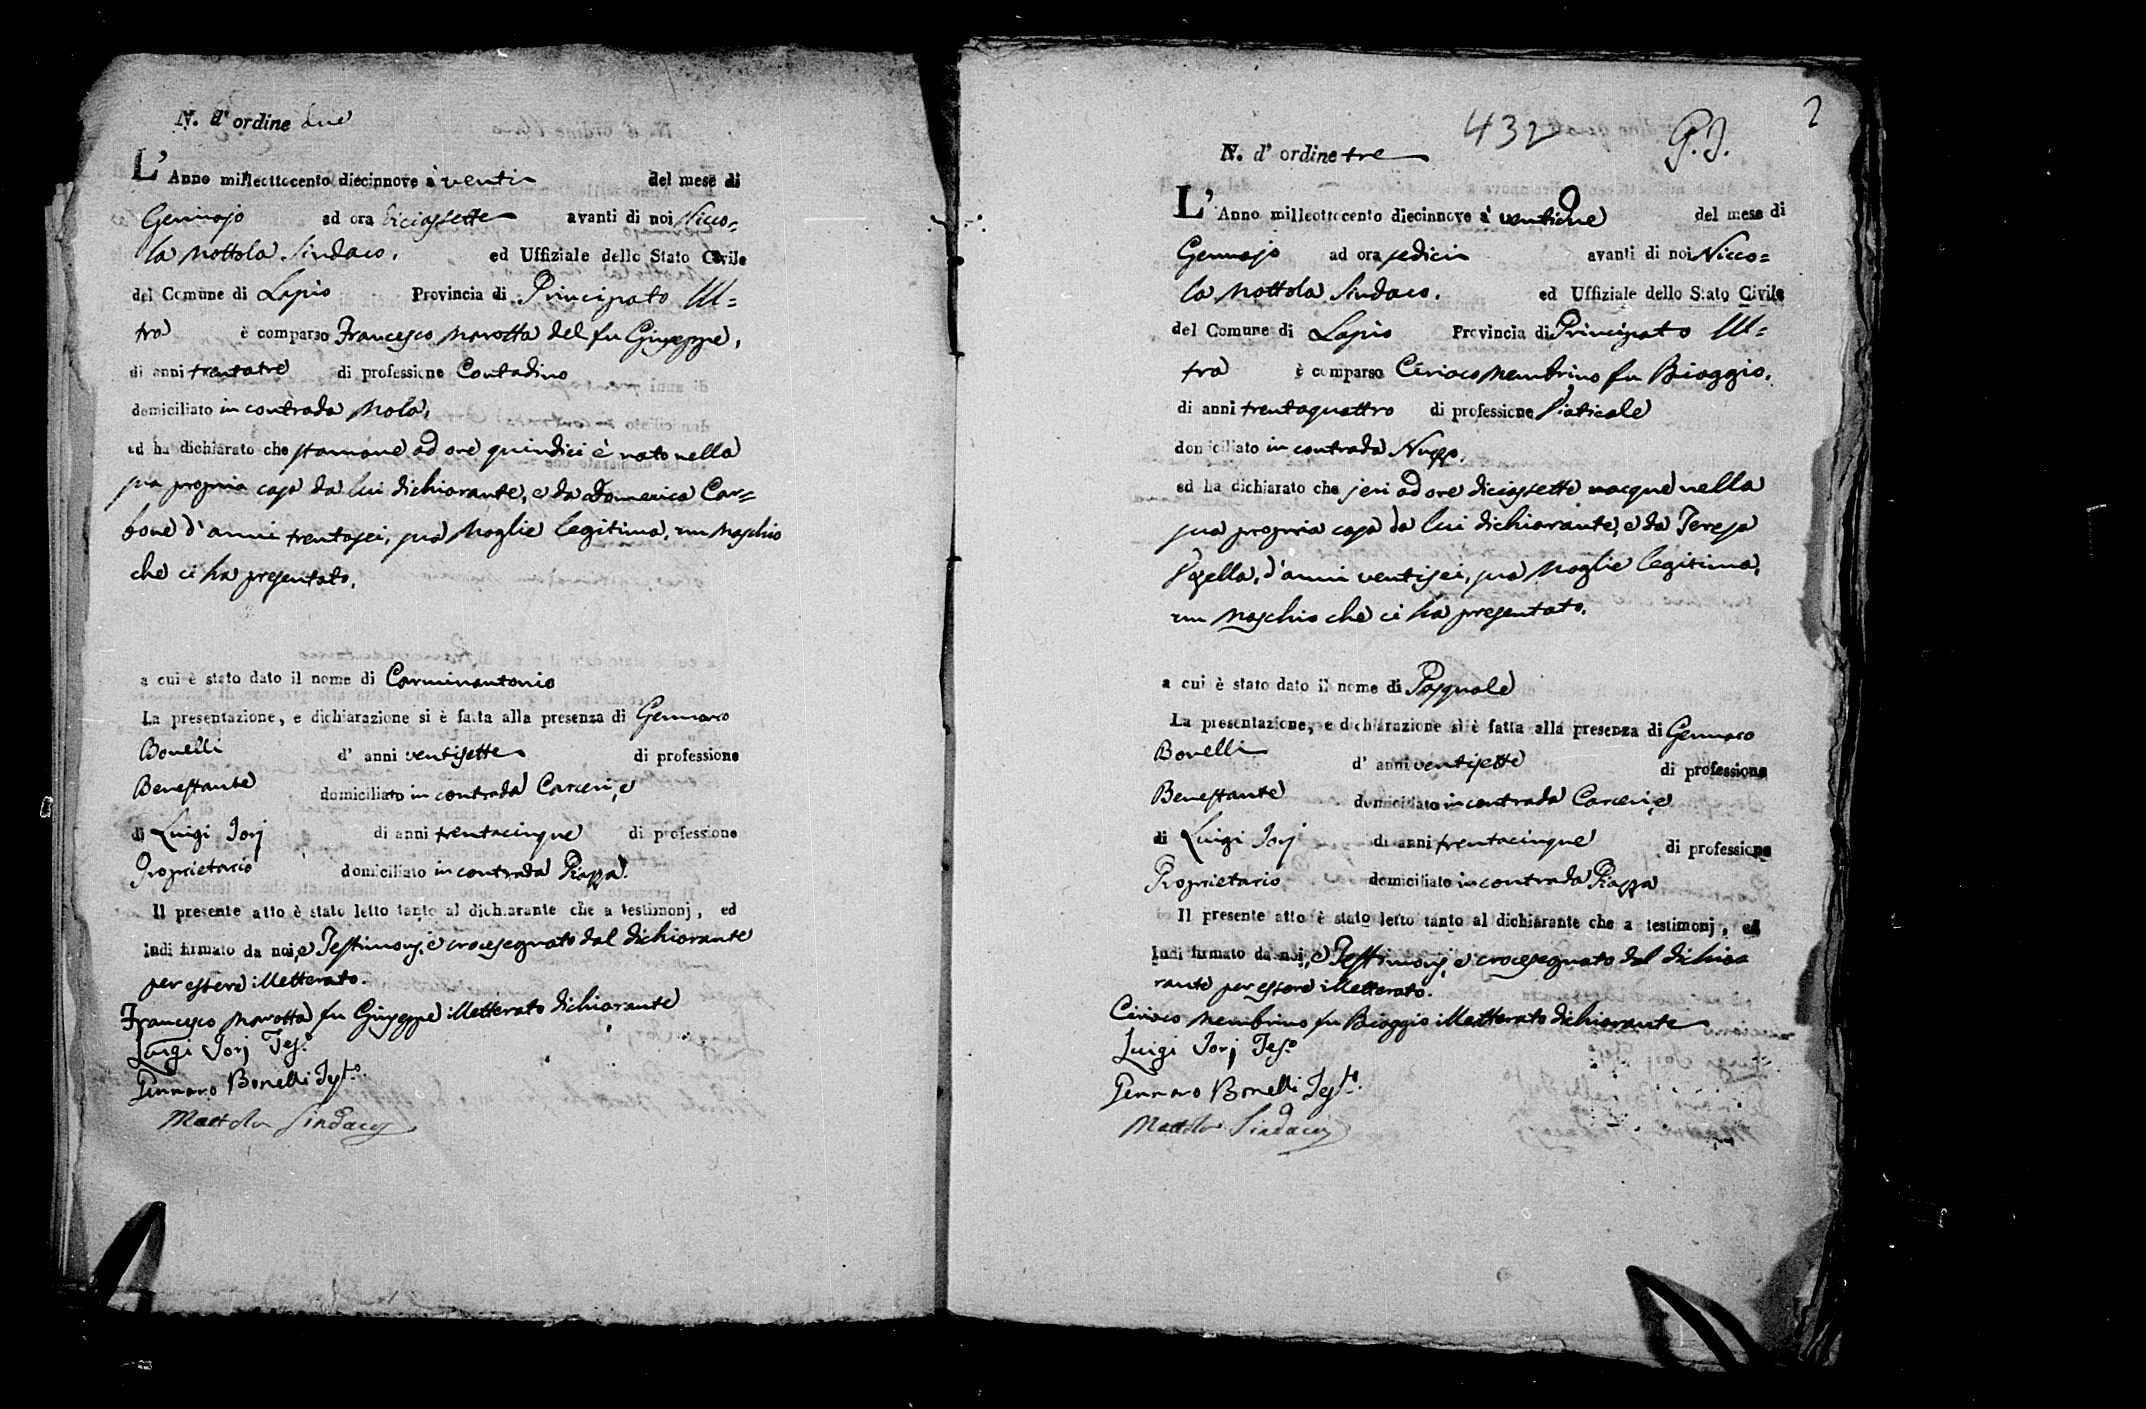 N. d' ordine due
L' Anno milleottocento diecinnove a' venti del mese di
Gennajo ad ora diciassette avanti di noi Nicco=
la Mottola Sindaco, ed Uffiziale dello Stato Civile
del Comune di Lapio Provincia di Principato Ul=
tra è comparso Francesco Marotta del fu Giuseppe,
di anni trentatre di professione Contadino
domiciliato in contrada Mola,
ed ha dichiarato che stamane ad ore quindici è nato nella
sua propria casa da lui dichiarante, e da Domenica Car=
bone d'anni trentasei, sua Moglie legitima, un Maschio
che ci ha presentato.
a cui è stato dato il nome di Carminantonio
La presentazione, e dichiarazione si è fatta alla presenza di Gennaro
Bonelli d' anni ventisette di professione
Benestante domiciliato in contrada Carceri, e
di Luigi Jorj di anni trentacinque di professione
Proprietario domiciliato in contrada Piazza.
Il presente atto è stato letto tanto al dichiarante che a testimonj, ed
indi firmato da noi, e Testimonj, e crocesegnato dal dichiarante
per essere illetterato.
Francesco Marotta fu Giuseppe illetterato dichiarante
Luigi Jorj Tes.o
Gennaro Bonelli Test.o
Mottola Sindaco
2
432 P. J.
N. d' ordine tre
L' Anno milleottocento diecinnove a' ventidue del mese di
Gennajo ad ora sedici avanti di noi Nicco=
la Mottola Sindaco, ed Uffiziale dello Stato Civile
del Comune di Lapio Provincia di Principato Ul=
tra è comparso Ciriaco Membrino fu Biaggio,
di anni trentaquattro di professione Viaticale
domiciliato in contrada
ed ha dichiarato che jeri ad ore diciassette nacque nella
sua propria casa da lui dichiarante, e da Teresa
d'anni ventisei, sua Moglie legitima,
un Maschio che ci ha presentato.
a cui è stato dato il nome di Pasquale
La presentazione, e dichiarazione si è fatta alla presenza di Gennaro
Bonelli d' anni ventisette di professione
Benestante domiciliato in contrada Carceri, e
di Luigi Jorj di anni trentacinque di professione
Proprietario domiciliato in contrada Piazza
Il presente atto è stato letto tanto al dichiarante che a testimonj, ed
indi firmato da noi, e Testimonj, e crocesegnato dal dichia
rante per essere illetterato.
Ciriaco Membrino fu Biaggio illetterato dichiarante
Luigi Jorj Tes.o
Gennaro Bonelli Test.o
Mottola Sindaco